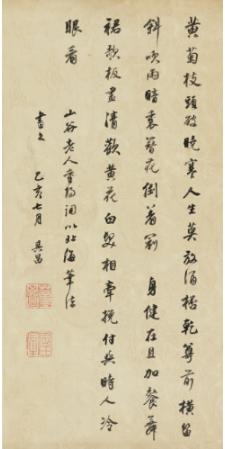 黃菊枝頭破曉寒人生莫放酒桮乾尊前橫笛
斜吹雨醉裏簪花倒著冠 身健在且加餐舞
裙歌板盡清歡黃花白髮相牽挽付與時人冷
眼看
山谷老人重陽詞以北海筆法
書之 乙亥七月